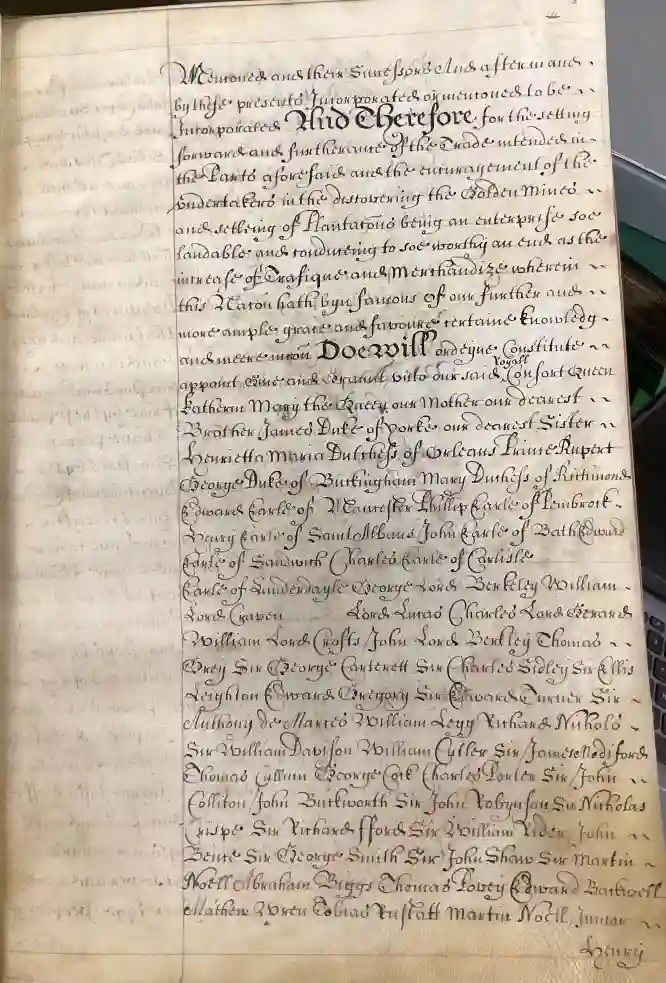 Menconed and their Successors And after in and
by these presents Incorporated or menconed to be
Incorporated And Therefore for the setting
forward and furtherance of the Trade intended in
the Parts aforesaid and the encuragement of the
Undertakers in the discovering the Golden Mines
and setleing of Plantacons being an enterprise soe
laudable and conduceing to soe worthy an end as the
increase of Trafique and Merchandize wherein
this Nacon hath byn famous Of our further and
more ample grace and favoure certaine knowledg
and meere mocon Doe will ordeyne Constitute
appoint Give and Graunt unto our said Royall Consort Queen
Katherin Mary the Queen our Mother our dearest
Brother James Duke of Yorke our dearest Sister
Henrietta Maria Dutchess of Orleans Prince Rupert
George Duke of Buckingham Mary Duchess of Richmond
Edward Earle of Manchester Phillip Earle of Pembrock
Henry Earle of Saint Albans John Earle of Bath Edward
Earle of Sandwich Charles Earle of Carlisle
Earle of Lauderdayle George Lord Berkeley William
Lord Craven Lord Lucas Charles Lord Gerard
William Lord Crofts John Lord Berkley Thomas
Grey Sir George Carterett Sir Charles Sidley Sir Ellis
Leighton Edward Gregory Sir Edward Turner Sir
Anthony de Marces William Legg Richard Nichols
Sir William Davison William Cutler Sir James Modiford
Thomas Cullum George Cock Charles Porter Sir John
Colliton John Buckworth Sir John Robynson Sir Nicholas
Crispe Sir Richard fford Sir William Rider John
Bence Sir George Smith Sir John Shaw Sir Martin
Noell Abraham Biggs Thomas Povey Edward Backwell
Mathew Wren Tobias Rustatt Martin Noell Junior
Henry